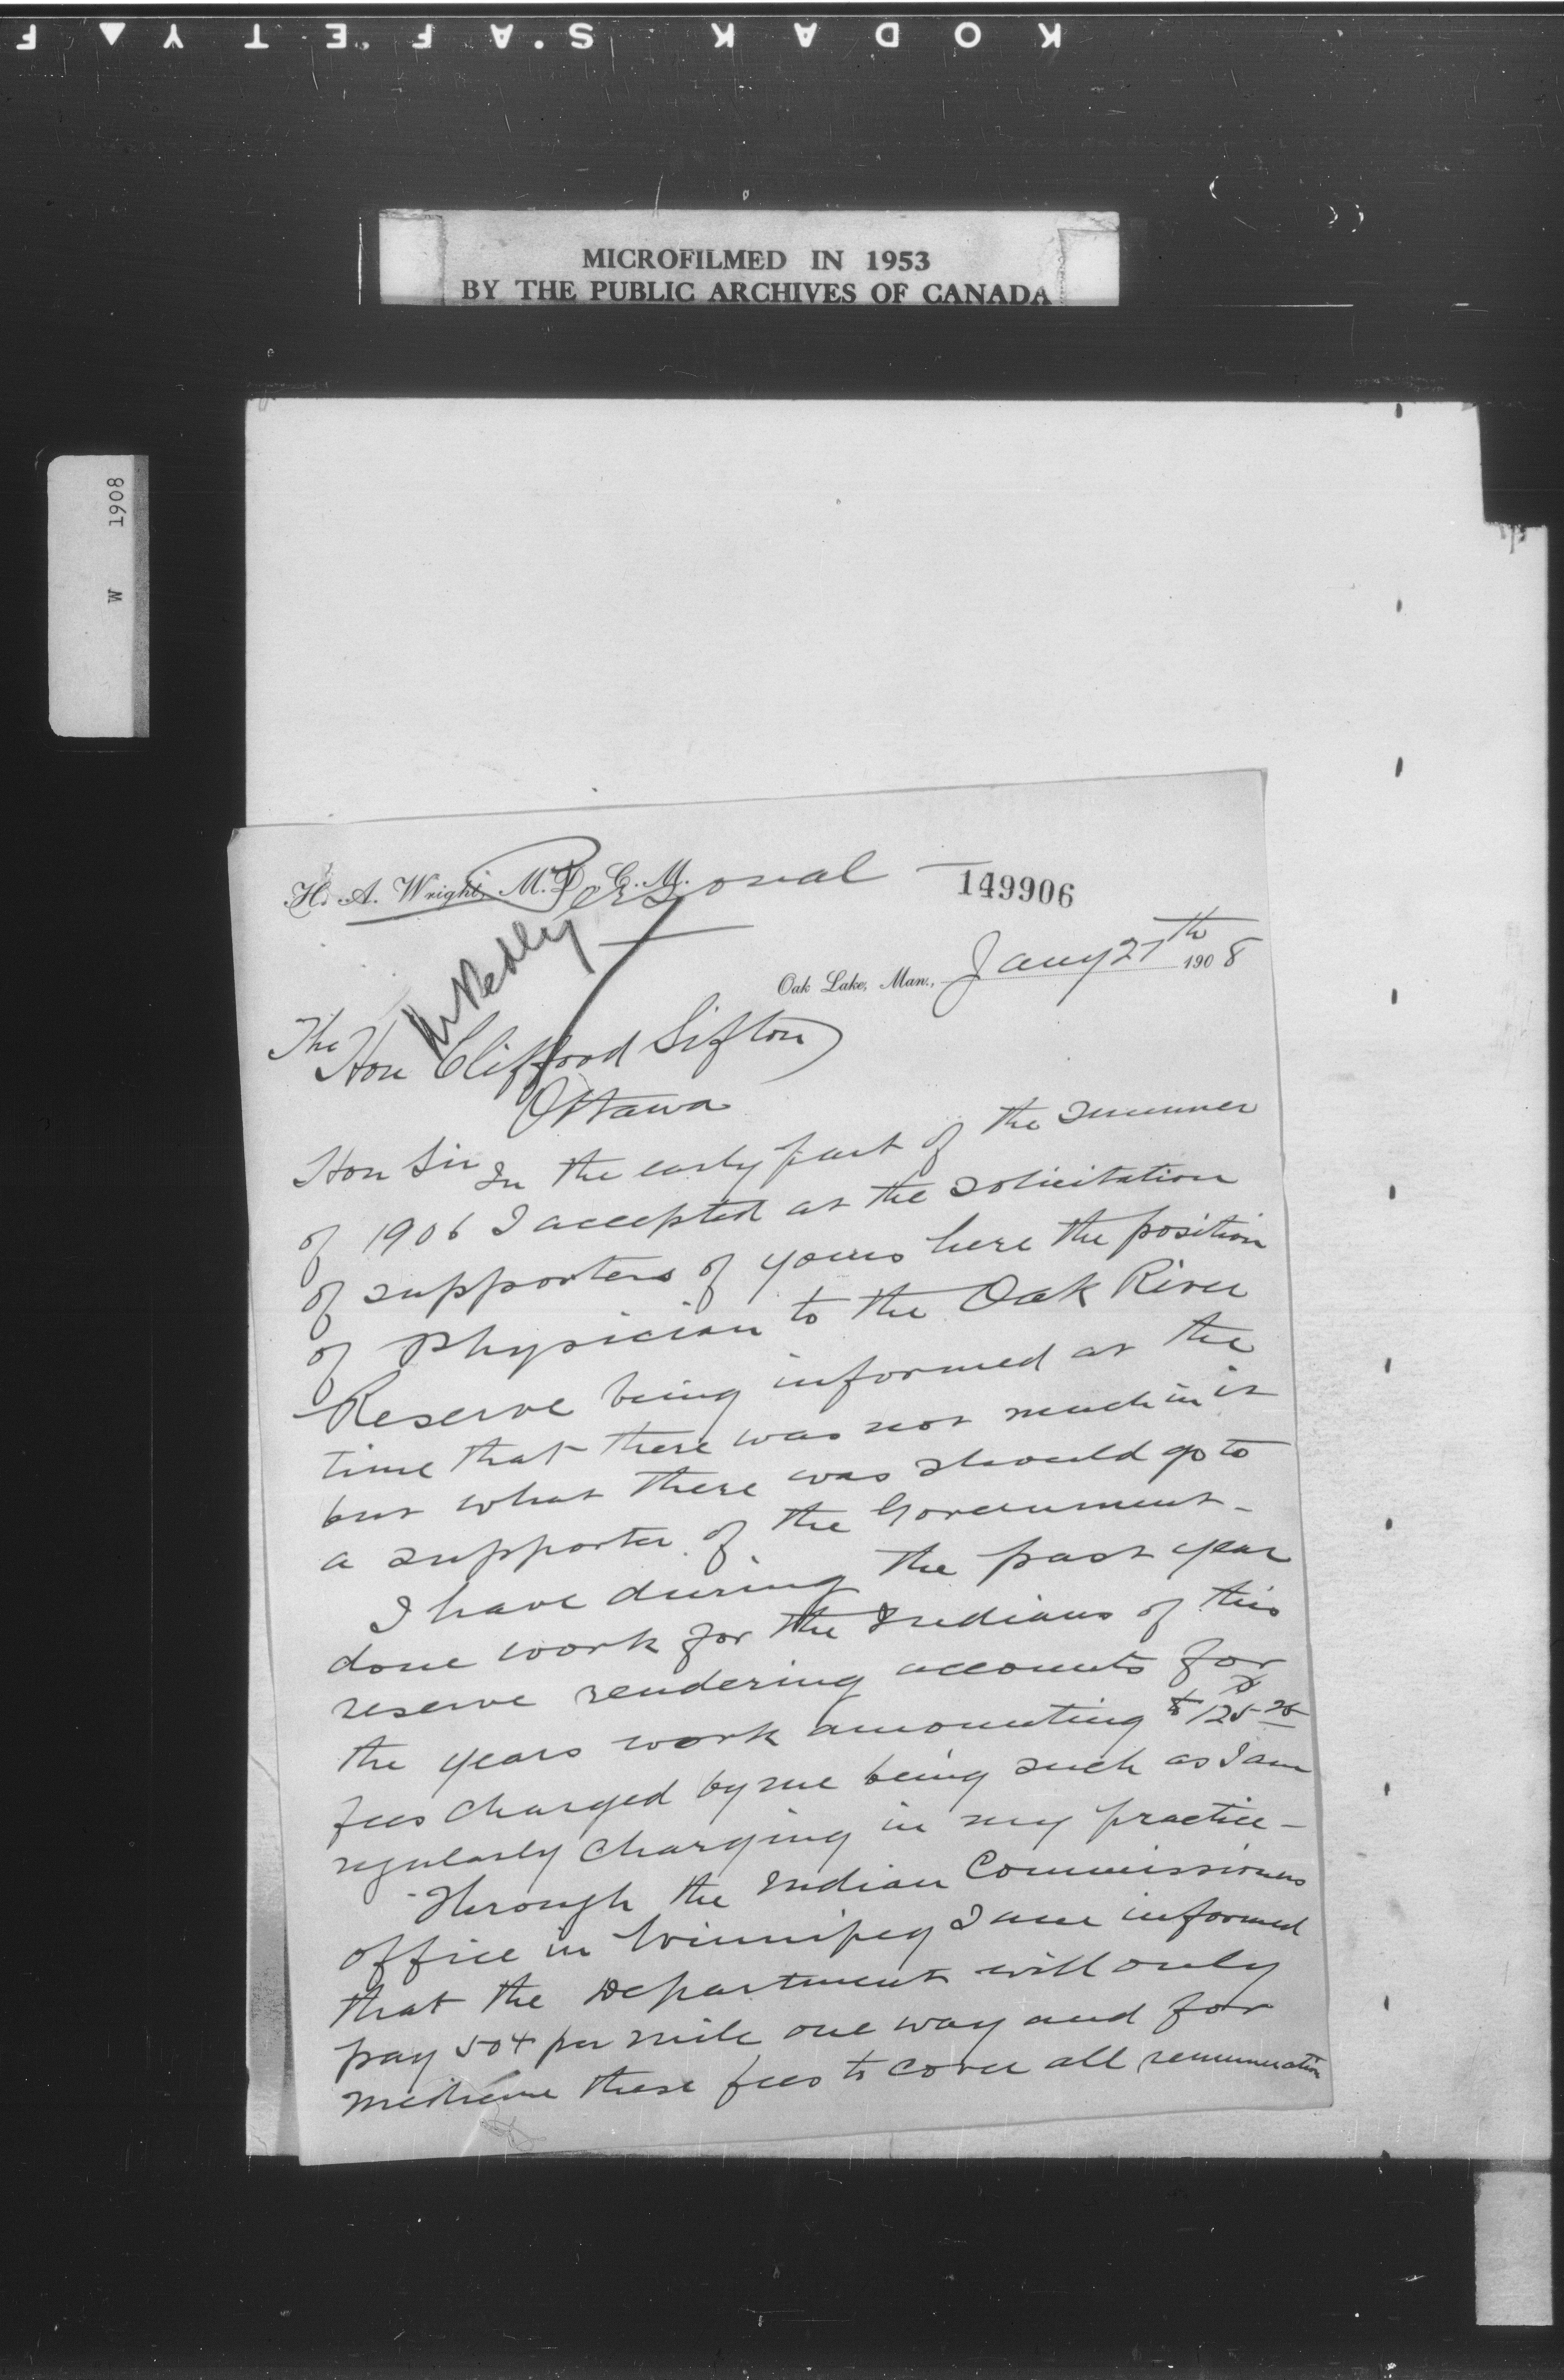 KODAK SAFETY F
MICROFILMED IN 1953
BY THE PUBLIC ARCHIVES OF CANADA
W 1908
H. A. Wright, M.D., C.M.
Personal
149906
Oak Lake, Man., Jany 27th 1908
The Hon Clifford Sifton
Ottawa
Hon Sir In the early part of the summer
of 1906 I accepted at the solicitation
of supporters of yours here the position
of Physician to the Oak River
Reserve being informed at the
time that there was not much in it
but what there was should go to
a supporter of the Government-
I have during the past year
done work for the Indians of this
reserve rendering accounts for
the years work amounting to $125 25
fees charged by me being such as I am
regularly charging in my practice-
Through the Indian Commissioners
office in Winnipeg I am informed
that the Department will only
pay 50¢ per mile one way and for
medicine these fees to cover all remuneration